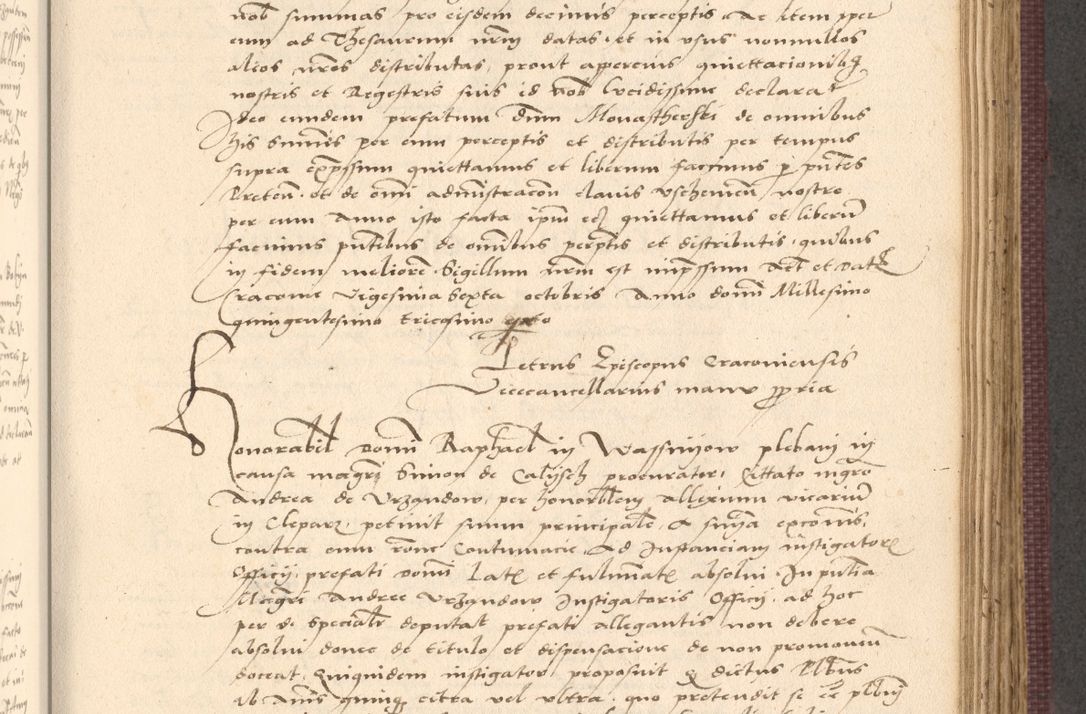 nob summas pro eisdem decimis perceptis Ac item per
eum ad Thesaurum nrm datas et in usus nonnullos
alios nros distributas, prout apercius quiettacionibus
nostris et Regestris suis id nob lucidissime declarat
Ideo eundem prefatum dnm Monastherski de omnibus
his summis per eum perceptis et distributis per tempus
supra expssum quiettamus et liberum facimus p pntes
et de omni administracoe clavis nostre
per eum Anno isto facta ipm quiettamus et liberu
facimus pntibus de omnibus perceptis et distributis, quibus
in fidem meliorem Sigillum nrm est impssum Act et Dat
Cracovie Vigesima Sexta octobris Anno domi Millesimo
quingentesimo tricesimo
Petrus Episcopus Cracoviensis
Vicecancellarius manu ppria
Honorabil Domi Raphael in Wassniow plebani in
causa magri Simon de Calijsch procurator, Cittato mgro
Andrea de Urzandow, per honorblem Allexium vicariu
in Clepar, petivit suum principale, A snia excois,
contra eum rone Contumacie, Ad Instanciam instigatore
Officij prefati Domi Late et fulminate absolvi. In pntia
Magri Andree Urzandow Instigatoris Officij, ad hoc
per de specialr deputat prefati allegantis non debere
absolvi donec de titulo et dispensacione de non promovendum
doceat, Quiquidem instigator proposuit q dictus Plbnus
ab Anis quinq citra vel ultra, quo pretendit se ee plbnu